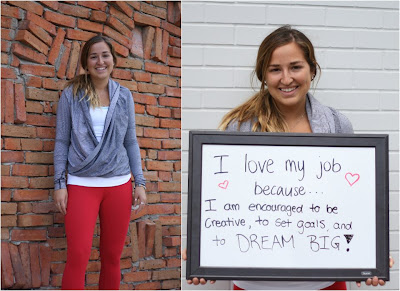 I love my job
because...
I am encouraged to be
Creative, to set goals, and
to DREAM BIG!